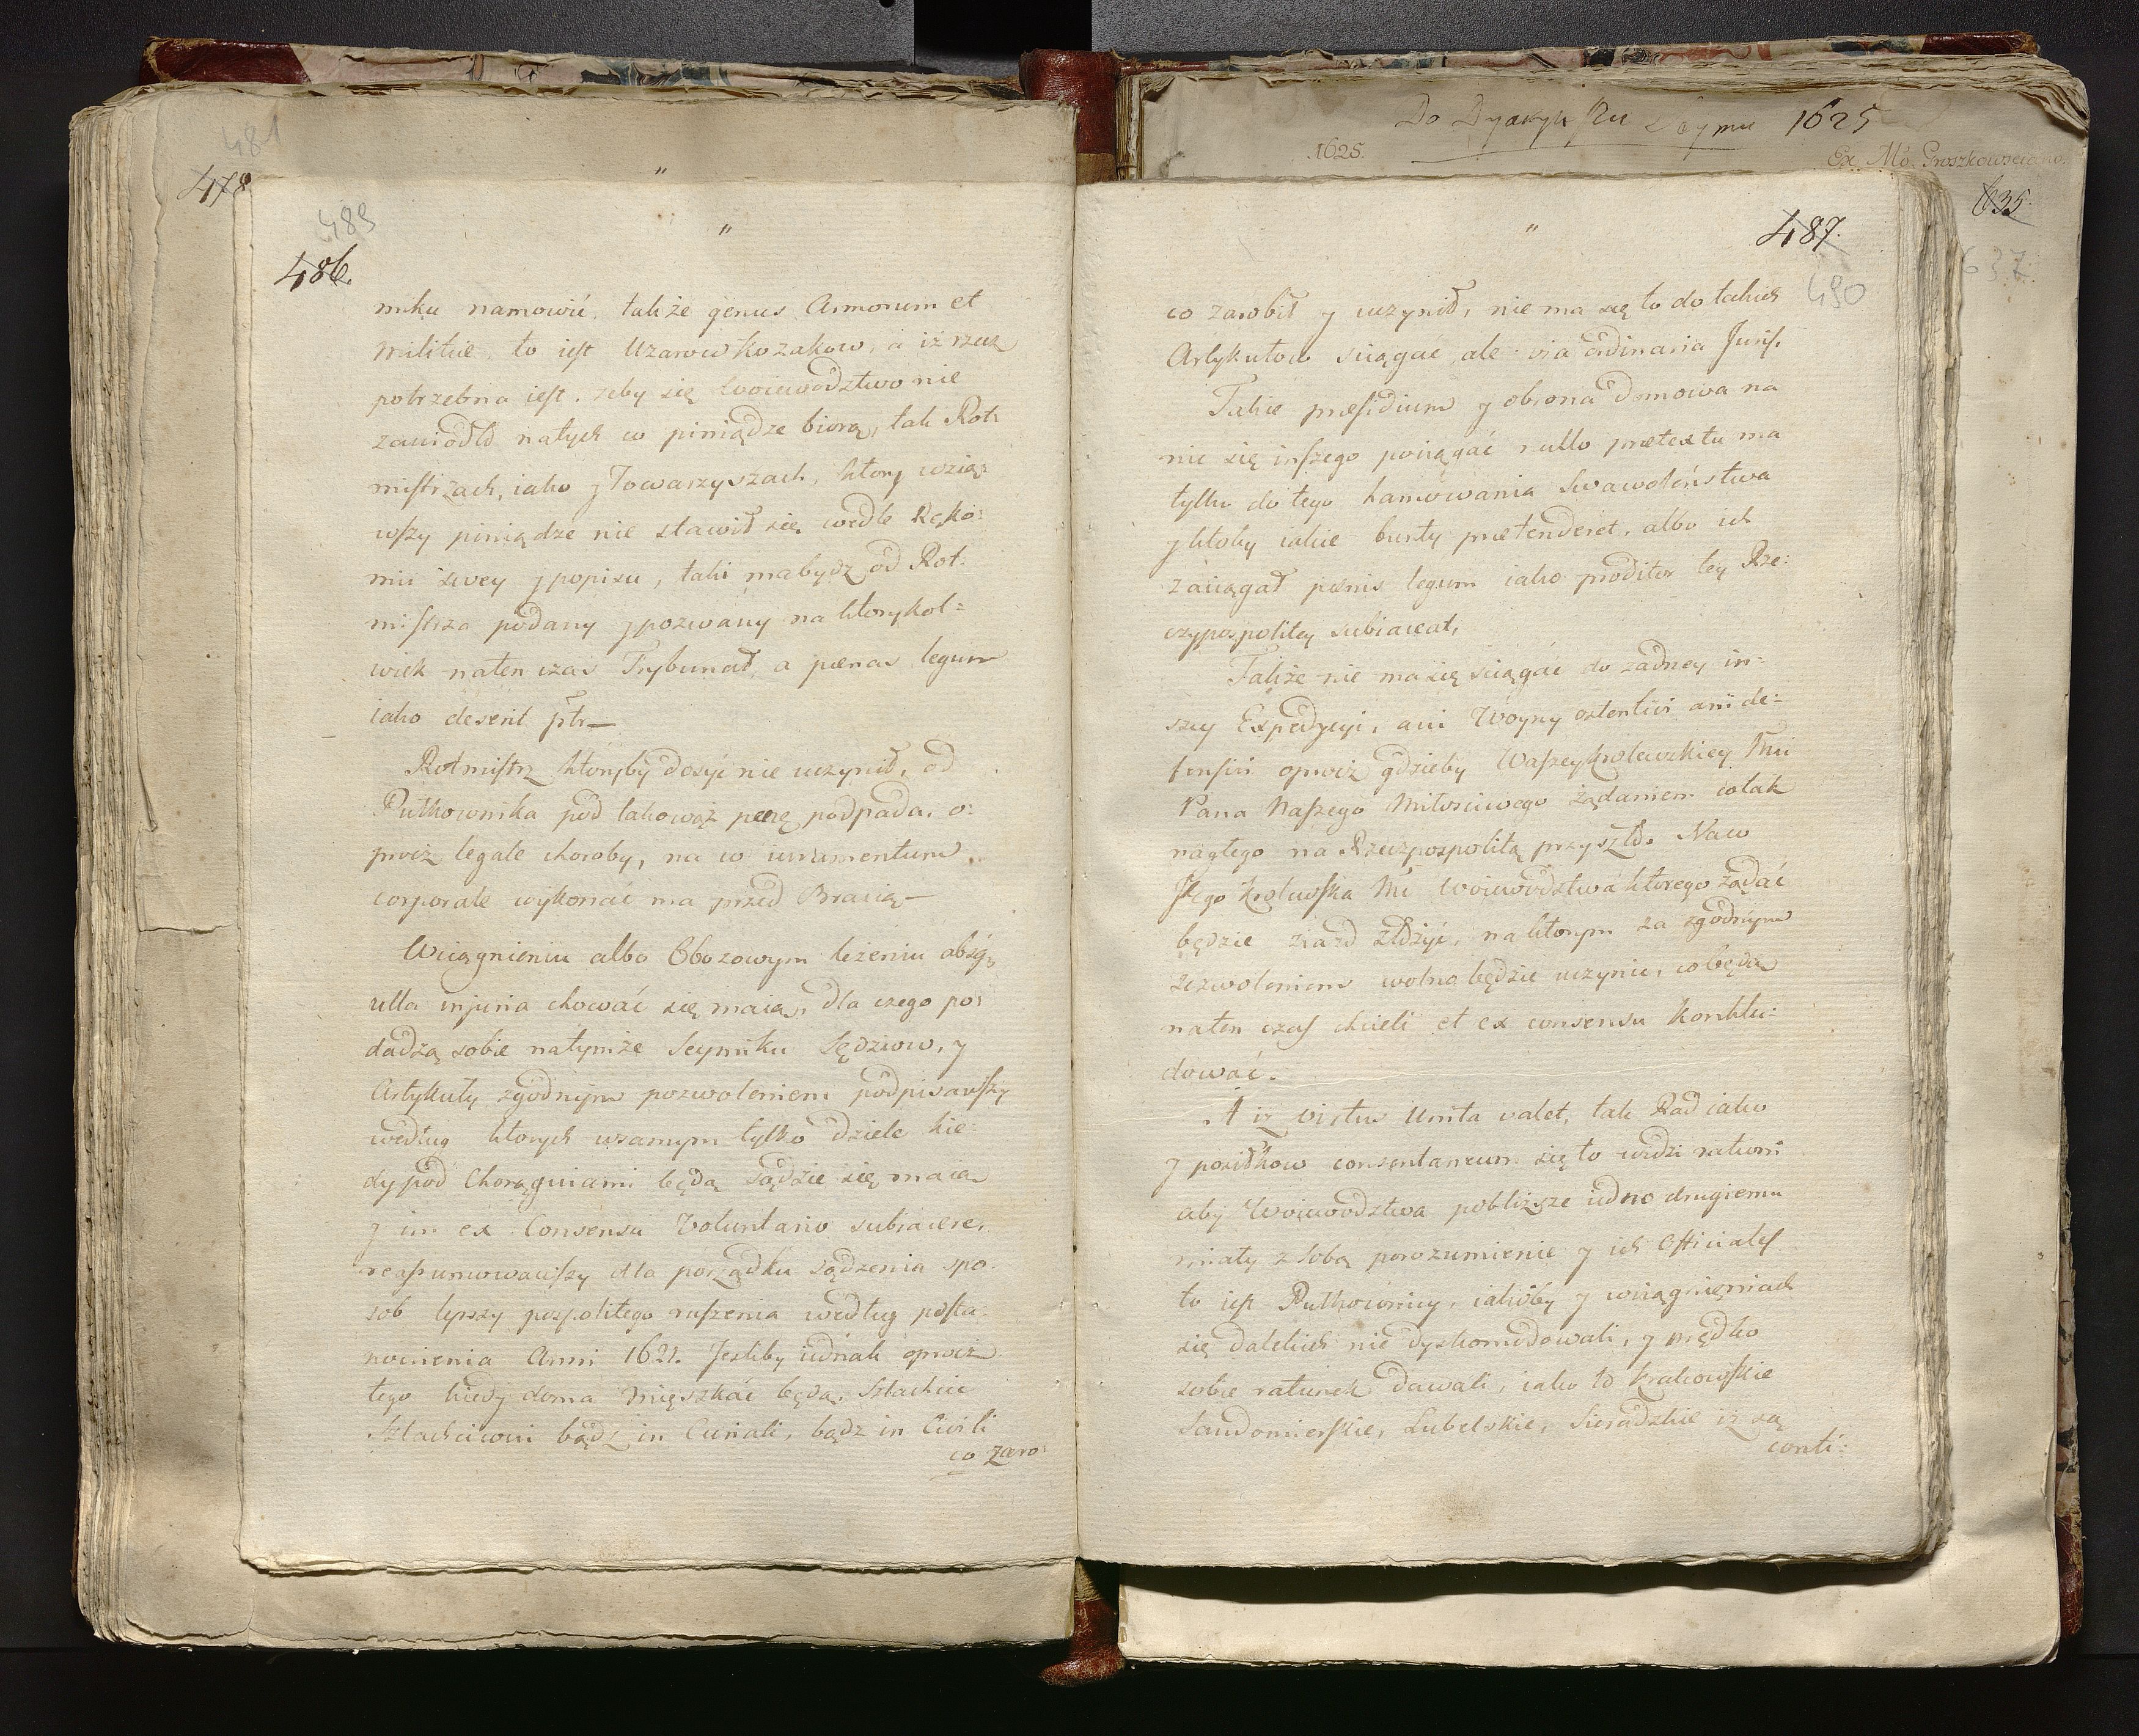 481
478
"
489
486.
mku namowić, takze genus Armorum et
Militiæ, to iest Uzarow Kozakow, a iż rzecz
potrzebna iest. żeby się Woiewodztwo nie
zawiodło natych co piniądze biorą, tak Rot:
mistrzach, iako y Towarzyszach, ktory wziąː
wszy piniądze nie stawił się wedle Ręko:
mu swey y popisu, taki ma bydz od Rot:
mistrza podany y pozwany na ktorykol:
wiek naten czas Trybunał, a pœnas legum
iako desert ptr—
Rotmistrz ktoryby dosyć nie uczynił, od
Pułkownika pod takowąż pœnę podpada, o:
procz legale choroby, na co iuramentum
corporale wykonać ma przed Bracią—
W ciągnieniu albo Obozowym leżeniu absq,
ulla injuria chować się maią, dla czego po:
dadzą sobie natymże Seymiku Sędziow, y
Artykuły zgodnym pozwoleniem podpisawszy
według ktorych wsamym tylko dziele kie:
dy pod Chorągwiami będą sądzic się maią
y im ex Consensu Voluntario subiacere,
reassumowawszy dla porządku sądzenia spo:
sob lepszy pospolitego ruszenia według posta:
nowienia Anni 1621. Jesliby iednak oprocz
tego kiedy doma mięszkać będą, Szlachcic
Szlachcicowi bądz in Curiali, bądz in Civili
co zaro:
Do Dyaryuszu Seymu 1625
1625.
Ex Mo. Groszkowsciano.
635.
637
"
487.
490
co zarobił y uczynił, nie ma się to do takich
Artykułow sciągac, ale via ordinaria Juris.
Takie præsidium y obrona domowa na
nic się inszego pociągać nullo prætextu ma
tylko do tego hamowania Swawoleństwa
y ktoby iakie bunty prætenderet, albo ich
zaciągał pœnis legum iako proditor tey Rze:
czypospolitey subiaceat,
Także nie ma się sciągać do zadney in:
szey Expedycyi, ani Woyny ostentivi ani de:
fensivi oprocz gdzieby Waszey Krolewskiey Mci
Pana Naszego Miłosciwego żądaniem co tak
nagłego na Rzeczpospolitą przyszło. Naco
Jego Krolewska Mć Woiewodztwa ktorego żądać
będzie ziazd złożyć, na ktorym za zgodnym
zezwoleniem wolno będzie uczynic, co będą
naten czas chcieli et ex consensu konklu:
dować.
A iz virtus Unita valet, tak Rad iako
y posiłkow consentaneum się to widzi rationi
aby Woiewodztwa pobliższe iedno drugiemu
miały z sobą porozumienie y ich Officiales
to iest Pułkownicy, iakoby y wciągnięniach
się dalekich nie dyskomodowali, y prędko
sobie ratunek dawali, iako to Krakowskie
Sandomierskie, Lubelskie, Sieradzkie iż są
conti: